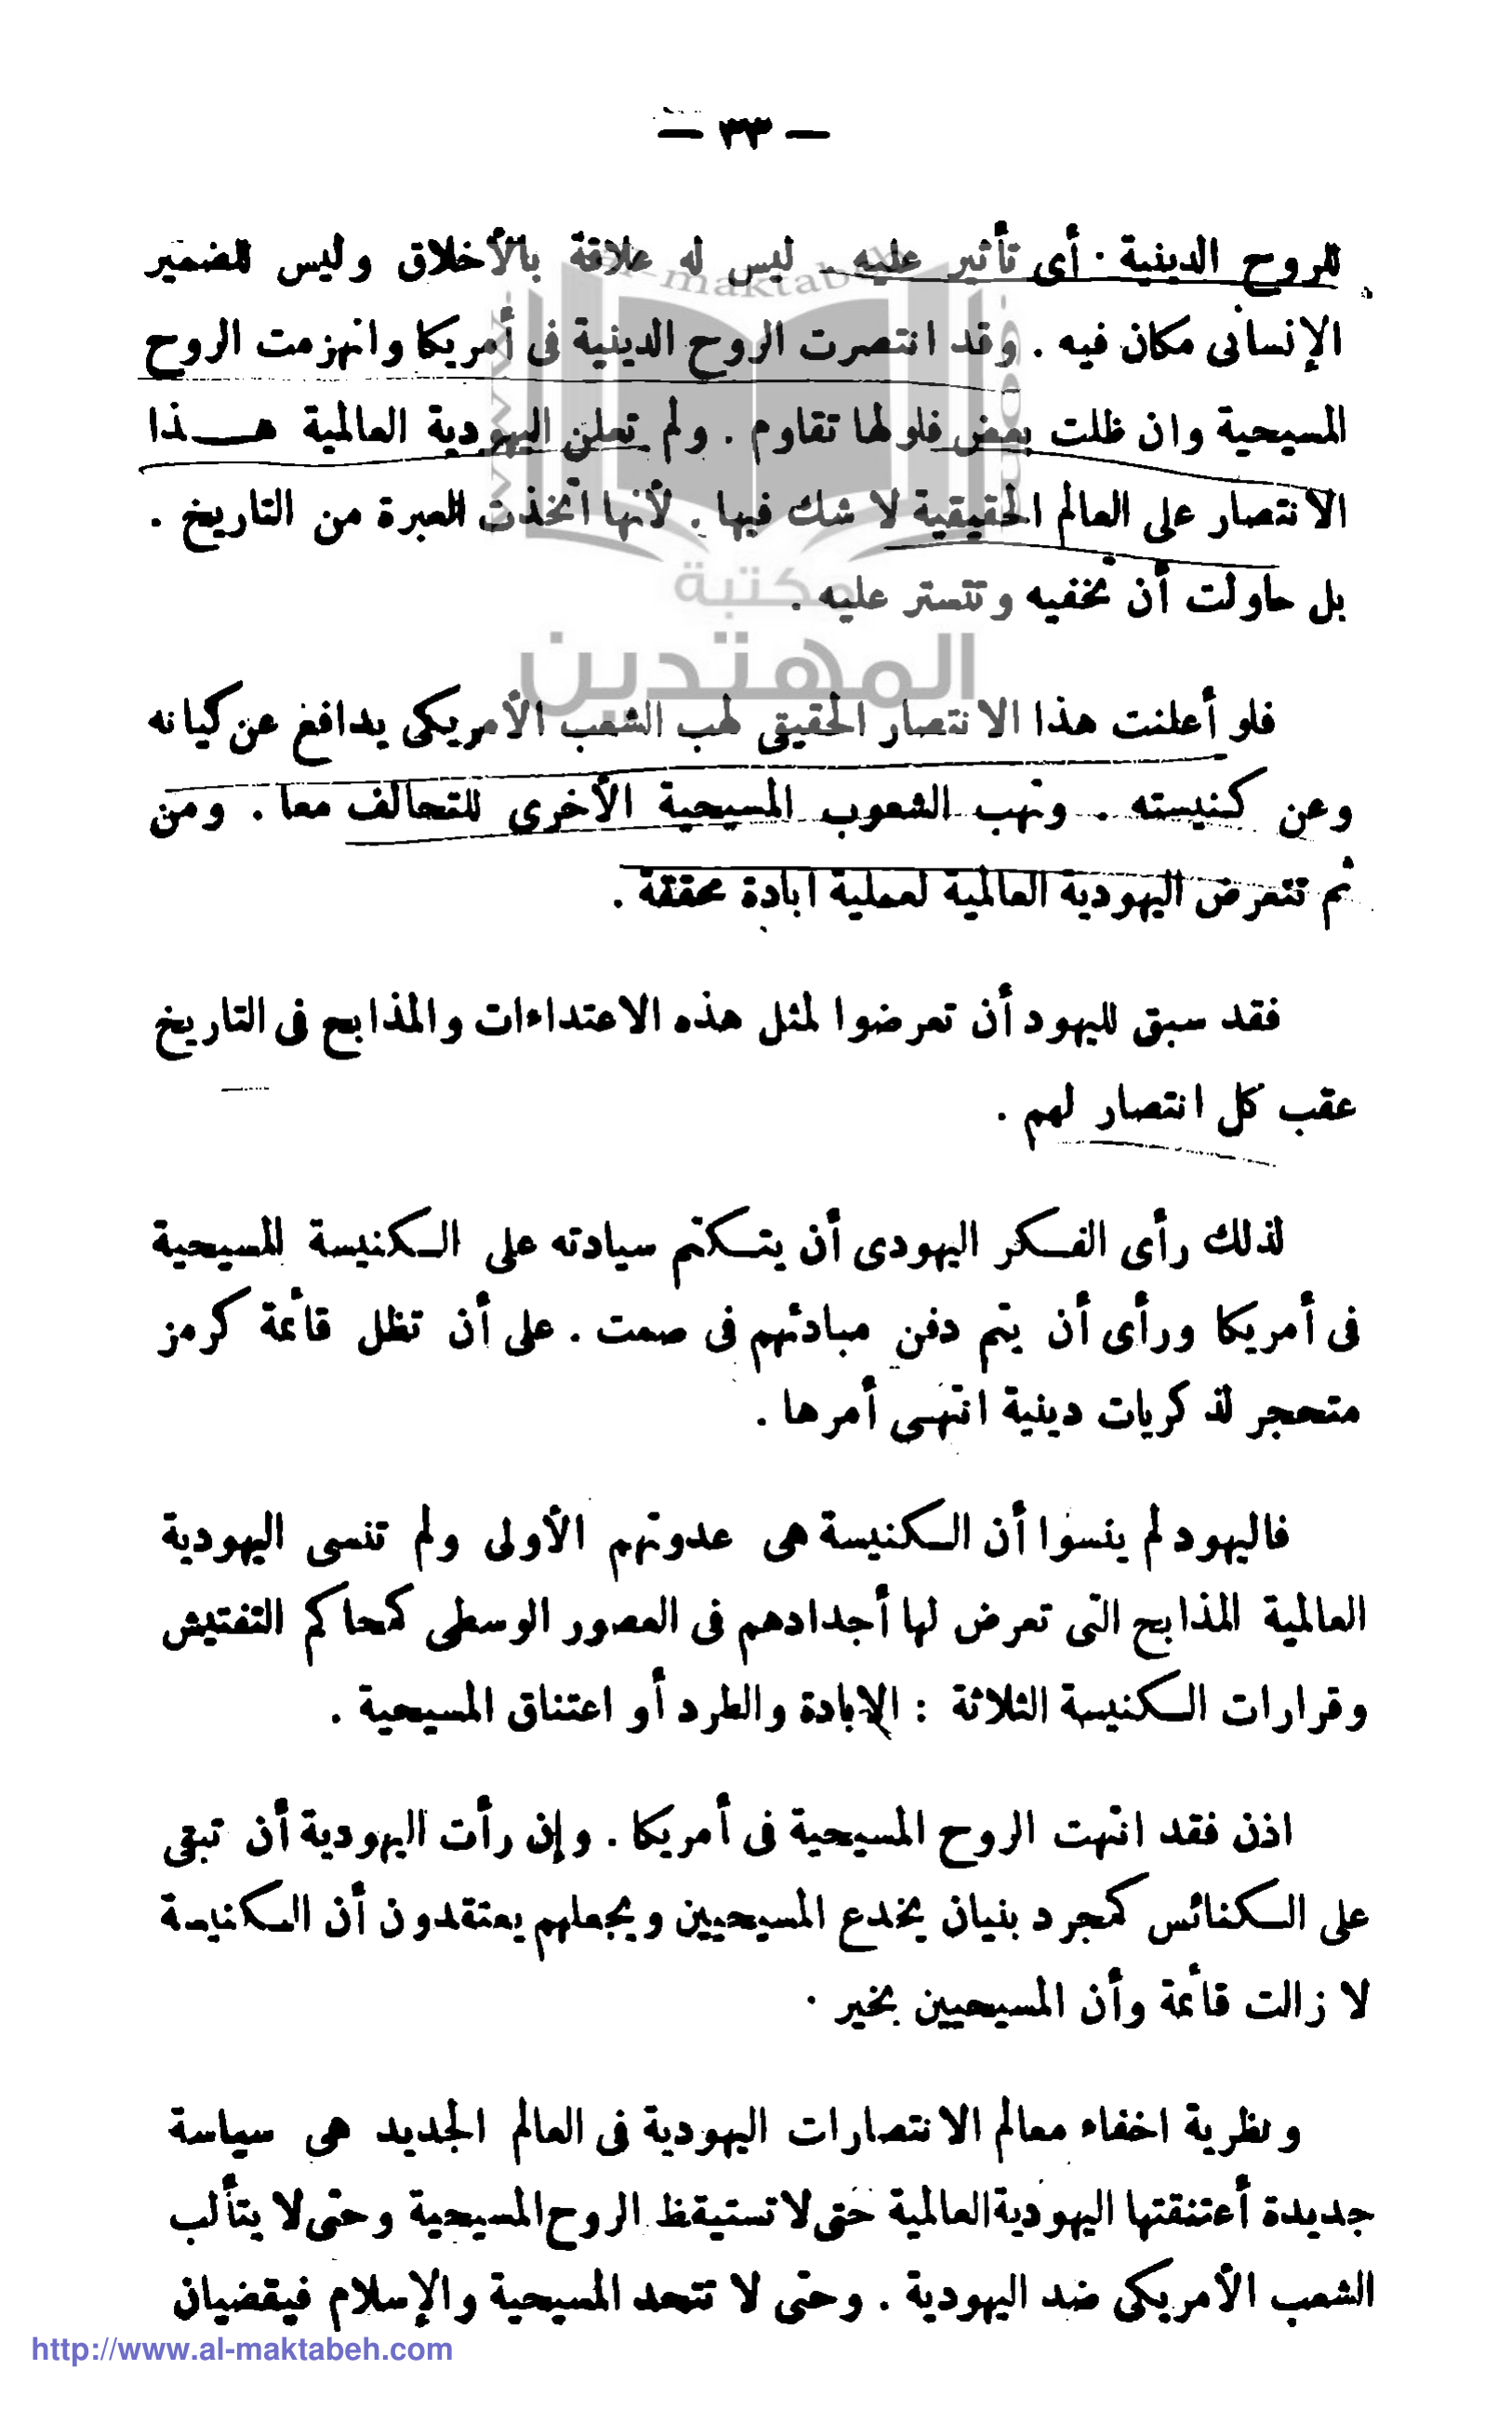 — ٣٣ —
للروح الدينية . أى تأثير عليه . ليس له علاقة بالأخلاق وليس للضمير
الإنسانى مكان فيه . وقد انتصرت الروح الدينية فى أمريكا وانهزمت الروح
المسيحية وان ظلت بعض فلولها تقاوم . ولم تعلن اليهودية العالمية هـذا
الانتصار على العالم الحقيقية لا شك فيها . لأنها اتخذت العبرة من التاريخ .
بل حاولت أن تخفيه وتتستر عليه .
مكتبة
المهتدين
فلو أعلنت هذا الانتصار الحقيقى لهب الشعب الأمريكى يدافع عن كيانه
وعن كنيسته . وتهب الشعوب المسيحية الأخرى للتحالف معا . ومن
ثم تتعرض اليهودية العالمية لعملية ابادة محققة .
فقد سبق لليهود أن تعرضوا لمثل هذه الاعتداءات والمذابح فى التاريخ
عقب كل انتصار لهم .
لذلك رأى الفـكر اليهودى أن يتـكتم سيادته على الـكنيسة المسيحية
فى أمريكا ورأى أن يتم دفن مبادئهم فى صمت . على أن تظل قائمة كرمز
متحجر لذكريات دينية انتهى أمرها .
فاليهود لم ينسوا أن الـكنيسة هى عدوتهم الأولى ولم تنسى اليهودية
العالمية المذابح التى تعرض لها أجدادهم فى العصور الوسطى كمحاكم التفتيش
وقرارات الـكنيسة الثلاثة : الإبادة والطرد أو اعتناق المسيحية .
اذن فقد انتهت الروح المسيحية فى أمريكا . وإن رأت اليهودية أن تبقى
على الـكنائس كمجرد بنيان يخدع المسيحيين ويجعلهم يعتقدون أن الـكنيسة
لا زالت قائمة وأن المسيحيين بخير .
ونظرية اخفاء معالم الانتصارات اليهودية فى العالم الجديد هى سياسة
جديدة أعتنقتها اليهودية العالمية حتى لا تستيقظ الروح المسيحية وحتى لا يتألب
الشعب الأمريكى ضد اليهودية . وحتى لا تتحد المسيحية والإسلام فيقضيان
http://www.al-maktabeh.com